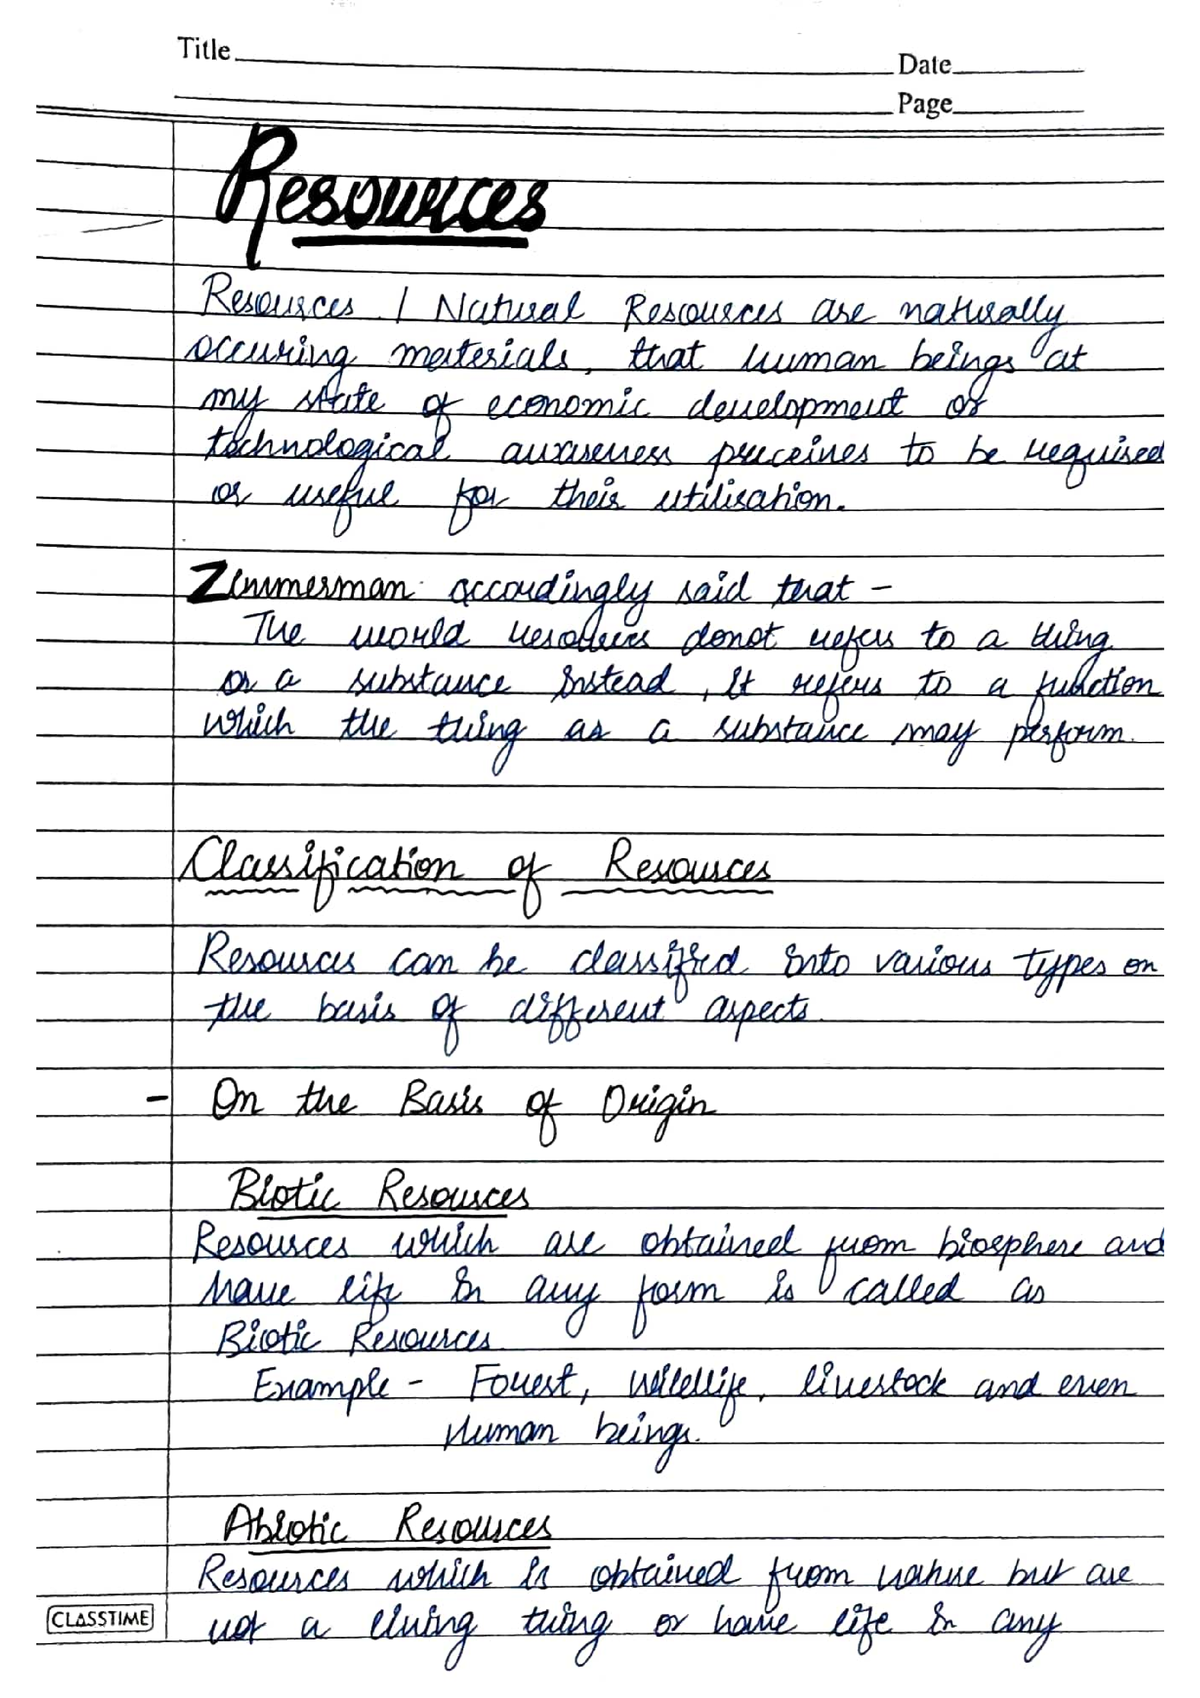 Title
Date
Page
Resources
Resources / Natural Resources are naturally
occuring materials, that human beings at
my state of economic development or
technological awareness preceives to be required
or useful for their utilisation.
Zimmerman accordingly said that -
The would resources donot refers to a thing
or a substance instead, it refers to a function
which the thing as a substance may perform.
Classification of Resources
Resources can be classified into various types on
the basis of different aspects.
- On the Basis of Origin
Biotic Resources
Resources which are obtained from biosphere and
have life in any form is called as
Biotic Resources
Example - Forest, wildlife, livestock and even
Human beings.
Abiotic Resources
Resources which is obtained from nature but are
not a living thing or have life in any
CLASSTIME